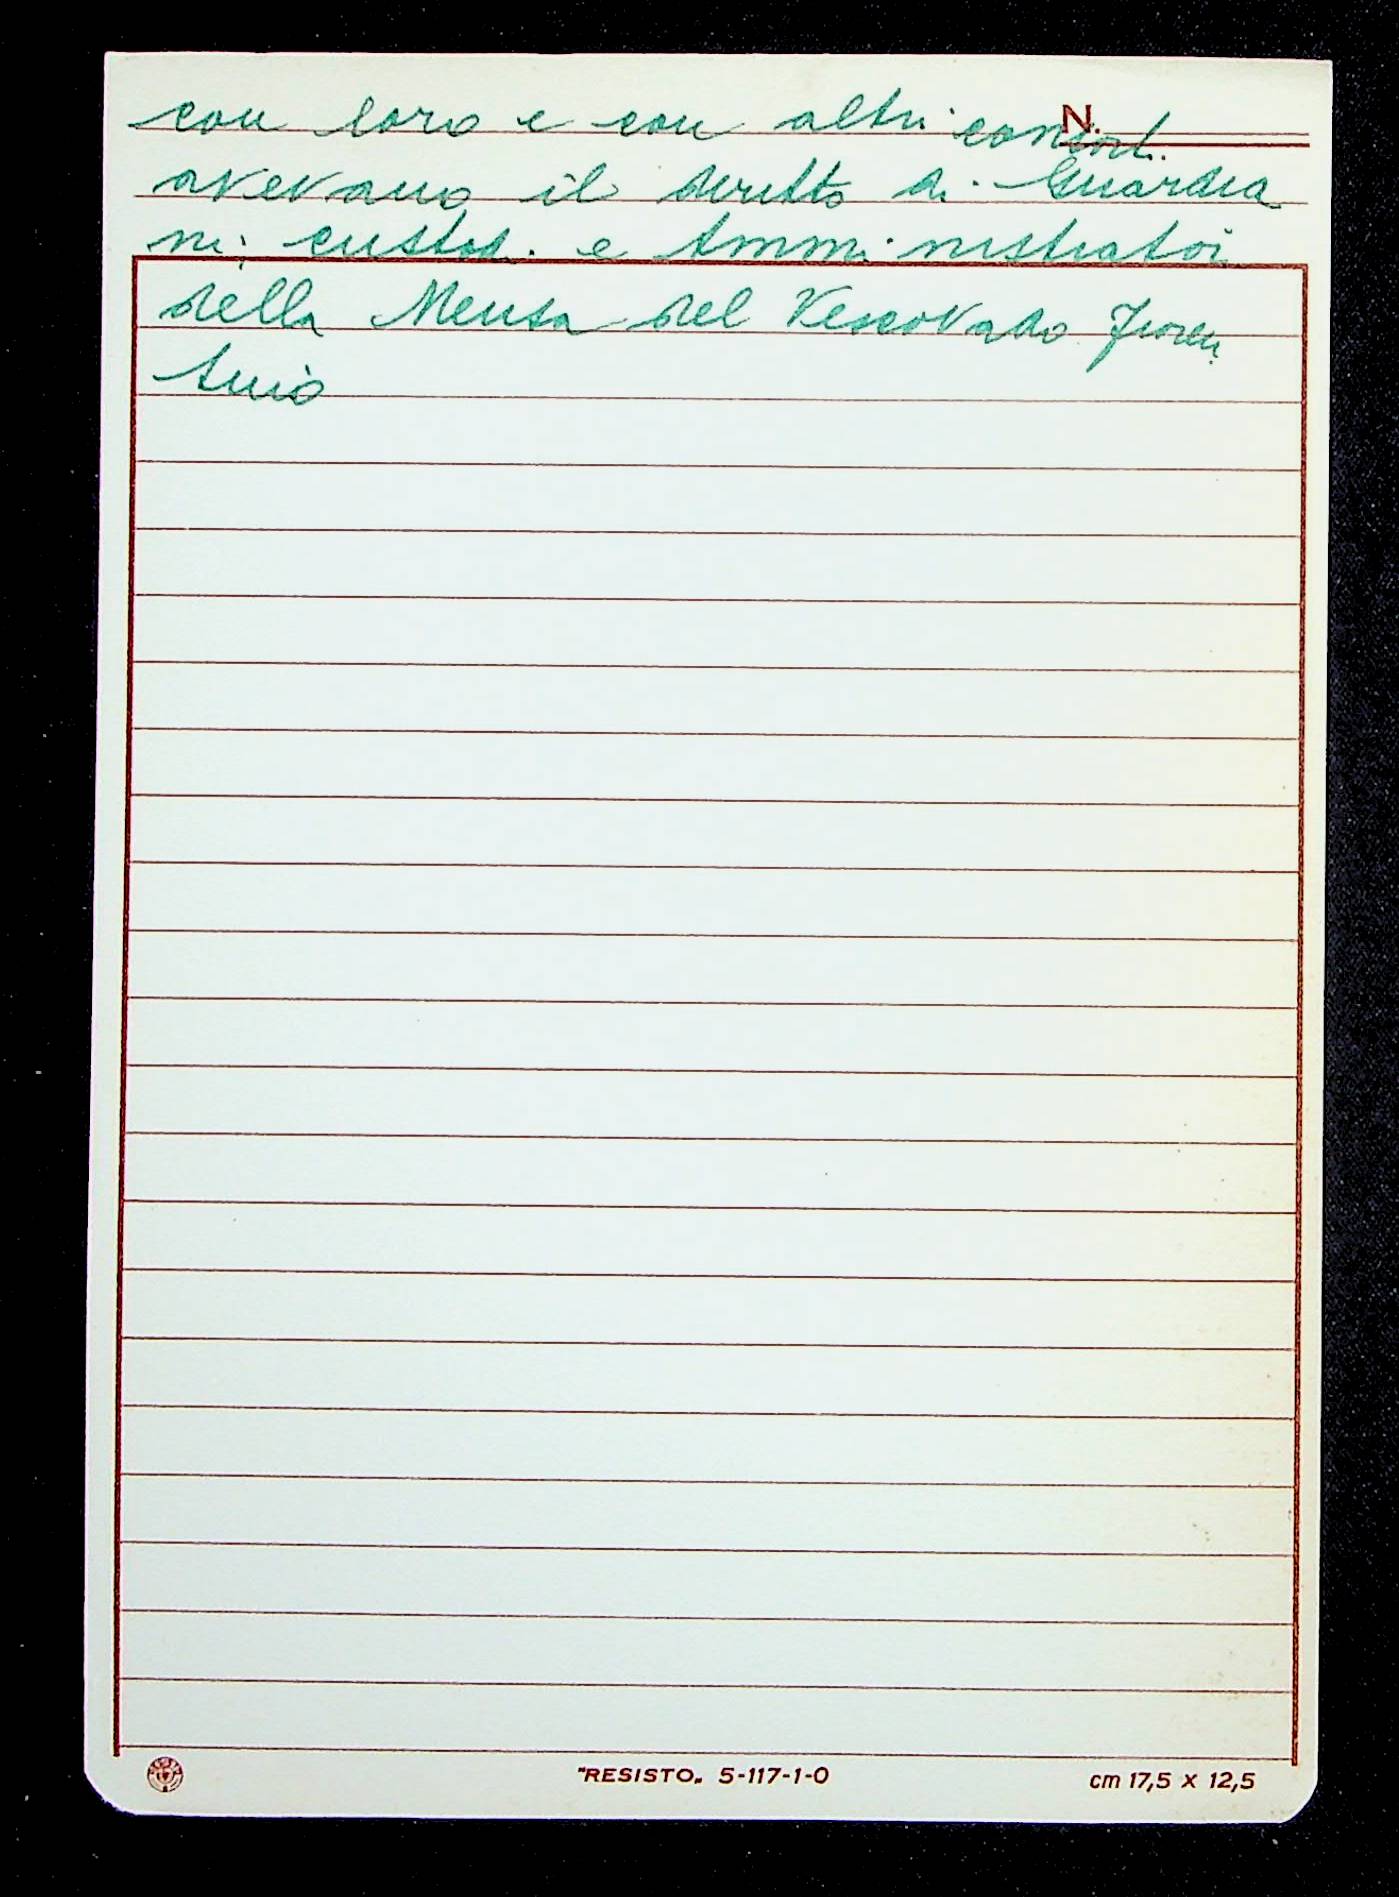 N.
con loro e con altri consorti
avevano il diritto di Guardia
ni; custodi e Amministratori
della Mensa del Vescovado Fioren
tino
"RESISTO„ 5-117-1-0
cm 17,5 x 12,5